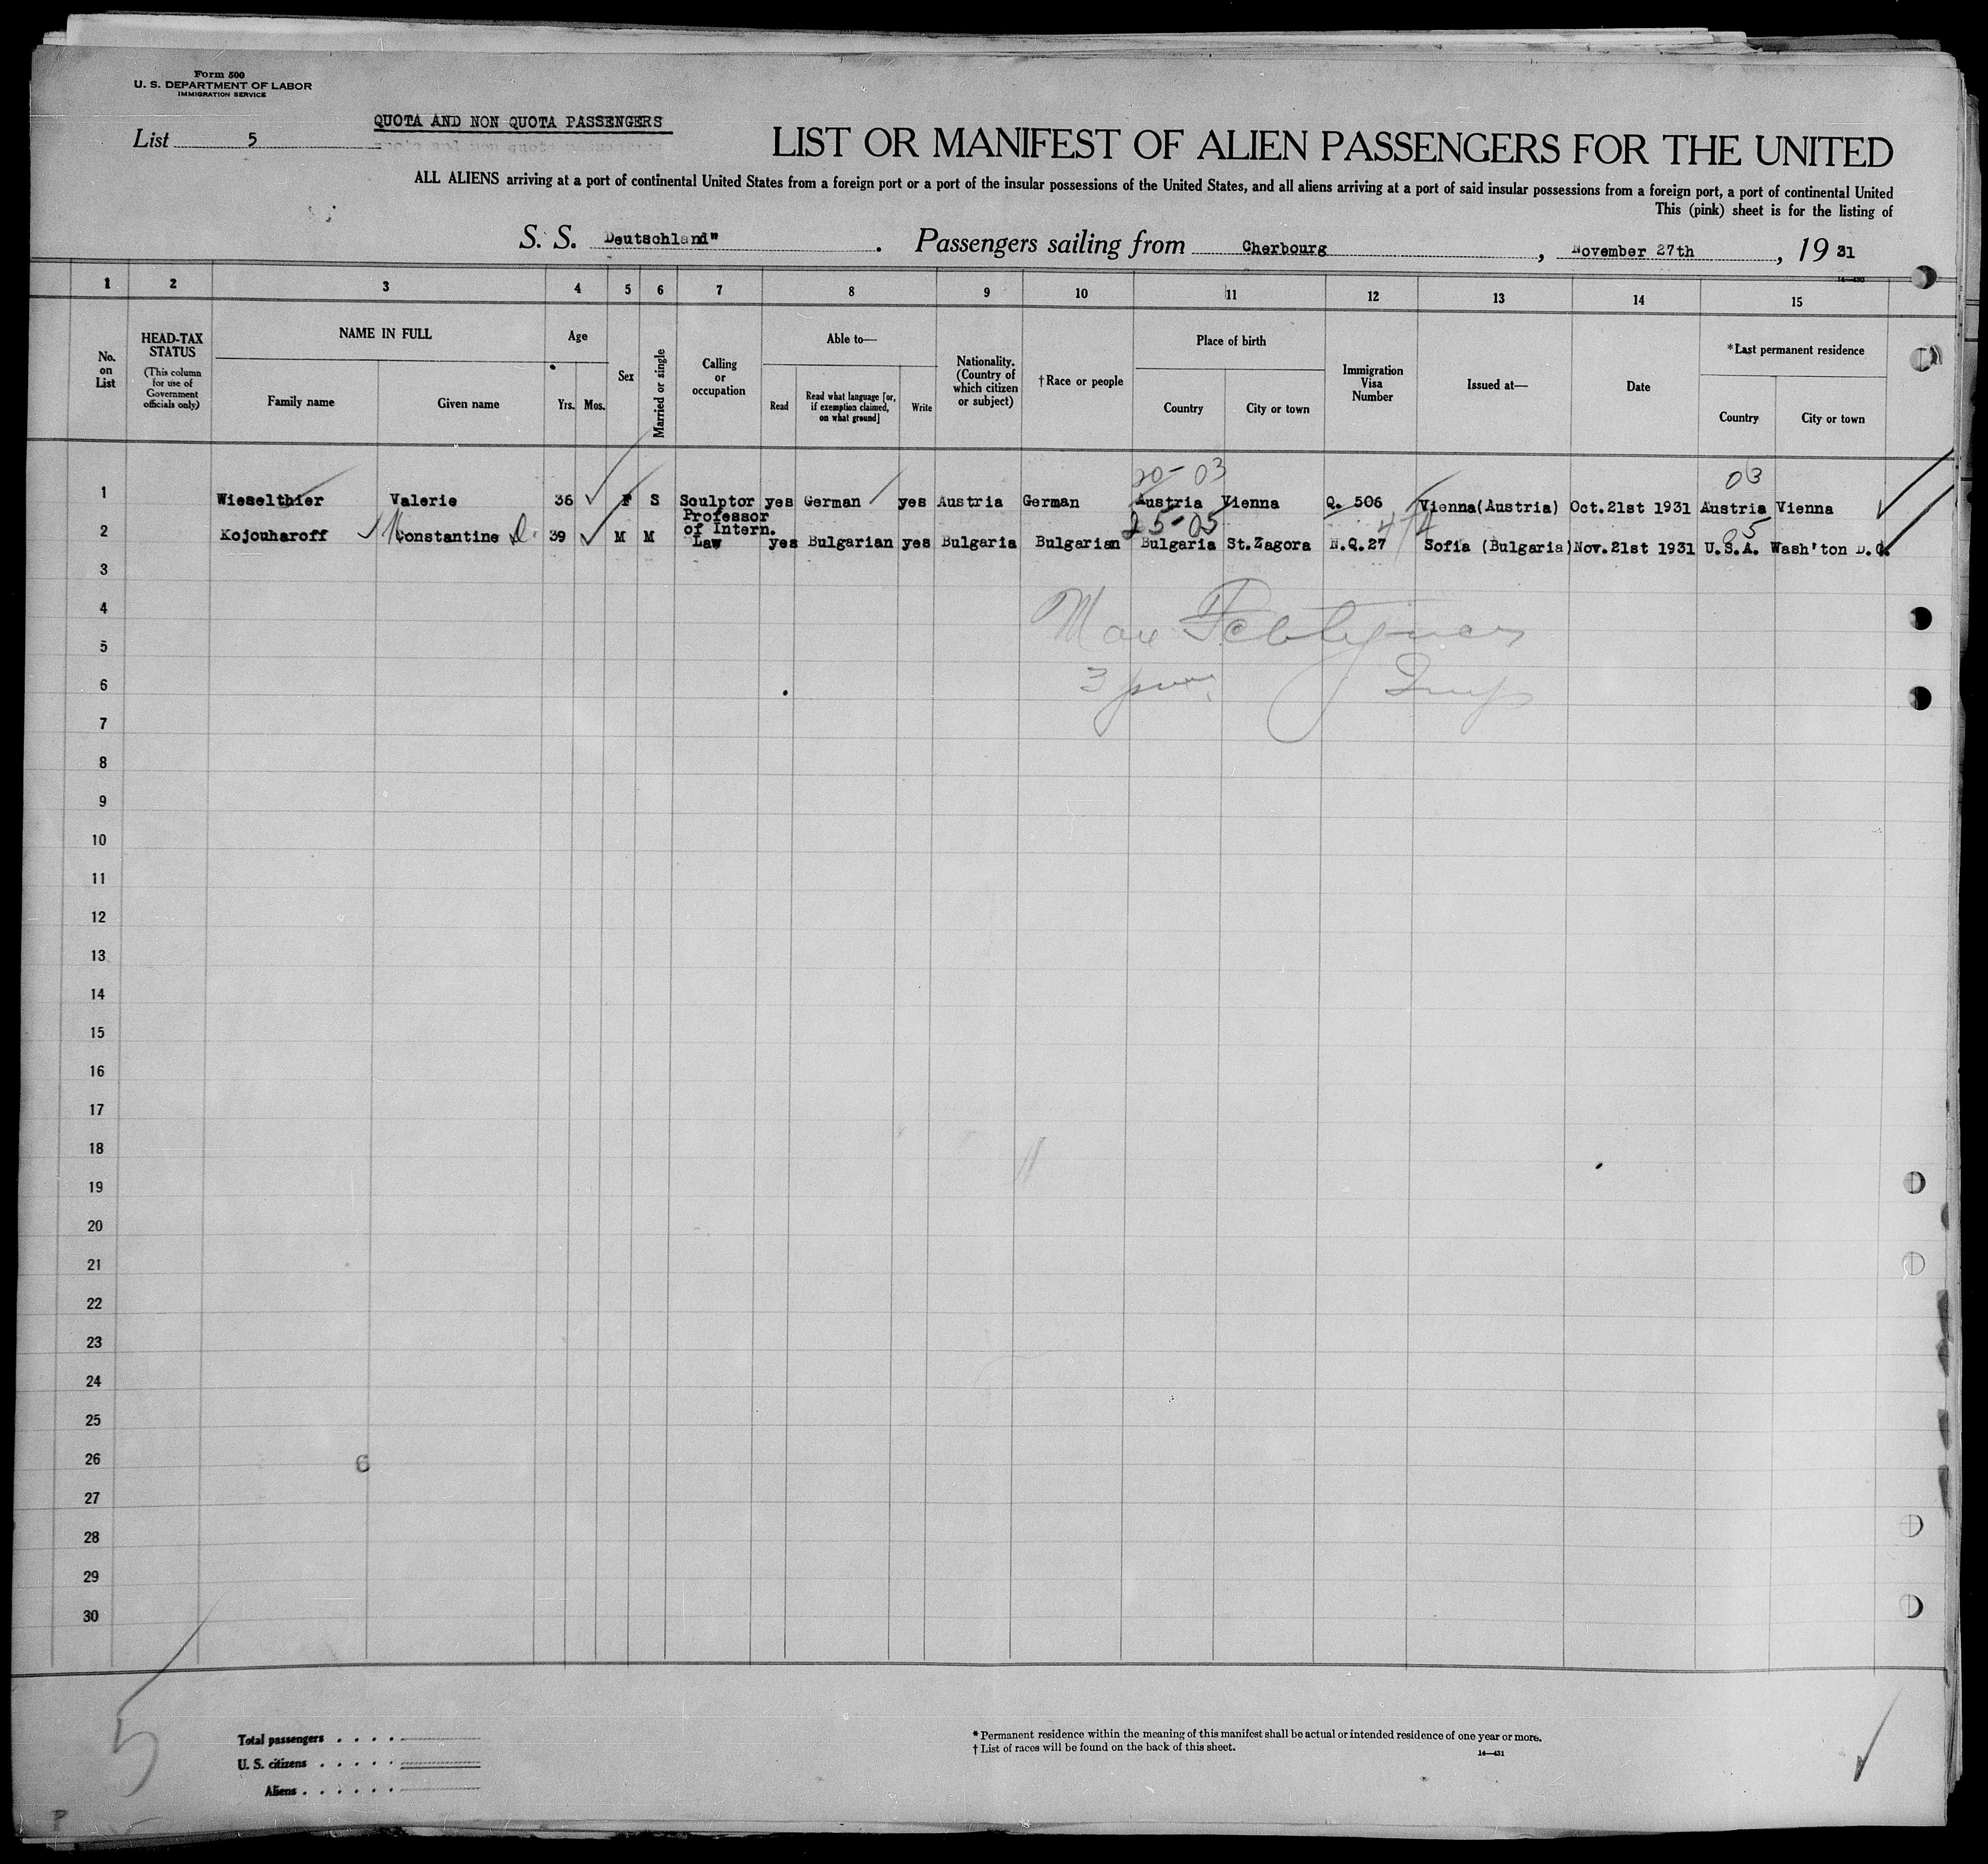 Form 500
U. S. DEPARTMENT OF LABOR
IMMIGRATION SERVICE
List 5
QUOTA AND NON QUOTA PASSENGERS
LIST OR MANIFEST OF ALIEN PASSENGERS FOR THE UNITED
ALL ALIENS arriving at a port of continental United States from a foreign port or a port of the insular possessions of the United States, and all aliens arriving at a port of said insular possessions from a foreign port, a port of continental United
This (pink) sheet is for the listing of
S. S. Deutschland" . Passengers sailing from Cherbourg , November 27th , 19 31
1 2 3 4 5 6 7 8 9 10 11 12 13 14 15
No. on List
HEAD-TAX STATUS
(This column for use of Government officials only)
NAME IN FULL
Family name Given name
Age
Yrs. Mos.
Sex
Married or single
Calling or occupation
Able to—
Read
Read what language [or, if exemption claimed, on what ground]
Write
Nationality. (Country of which citizen or subject)
†Race or people
Place of birth
Country City or town
Immigration Visa Number
Issued at—
Date
*Last permanent residence
Country City or town
20-03 03
1 Wieselthier Valerie 36 F S Sculptor yes German yes Austria German Austria Vienna Q. 506 Vienna(Austria) Oct.21st 1931 Austria Vienna
25-05 05
2 Kojouharoff Constantine D. 39 M M Professor of Intern. Law yes Bulgarian yes Bulgaria Bulgarian Bulgaria St.Zagora N.Q.27 Sofia (Bulgaria) Nov.21st 1931 U.S.A. Wash'ton D.C.
3
4
5
6
7
8
9
10
11
12
13
14
15
16
17
18
19
20
21
22
23
24
25
26
6
27
28
29
30
5
Total passengers . . . .
U. S. citizens . . . . .
Aliens . . . . . .
* Permanent residence within the meaning of this manifest shall be actual or intended residence of one year or more.
† List of races will be found on the back of this sheet.
14—431
P